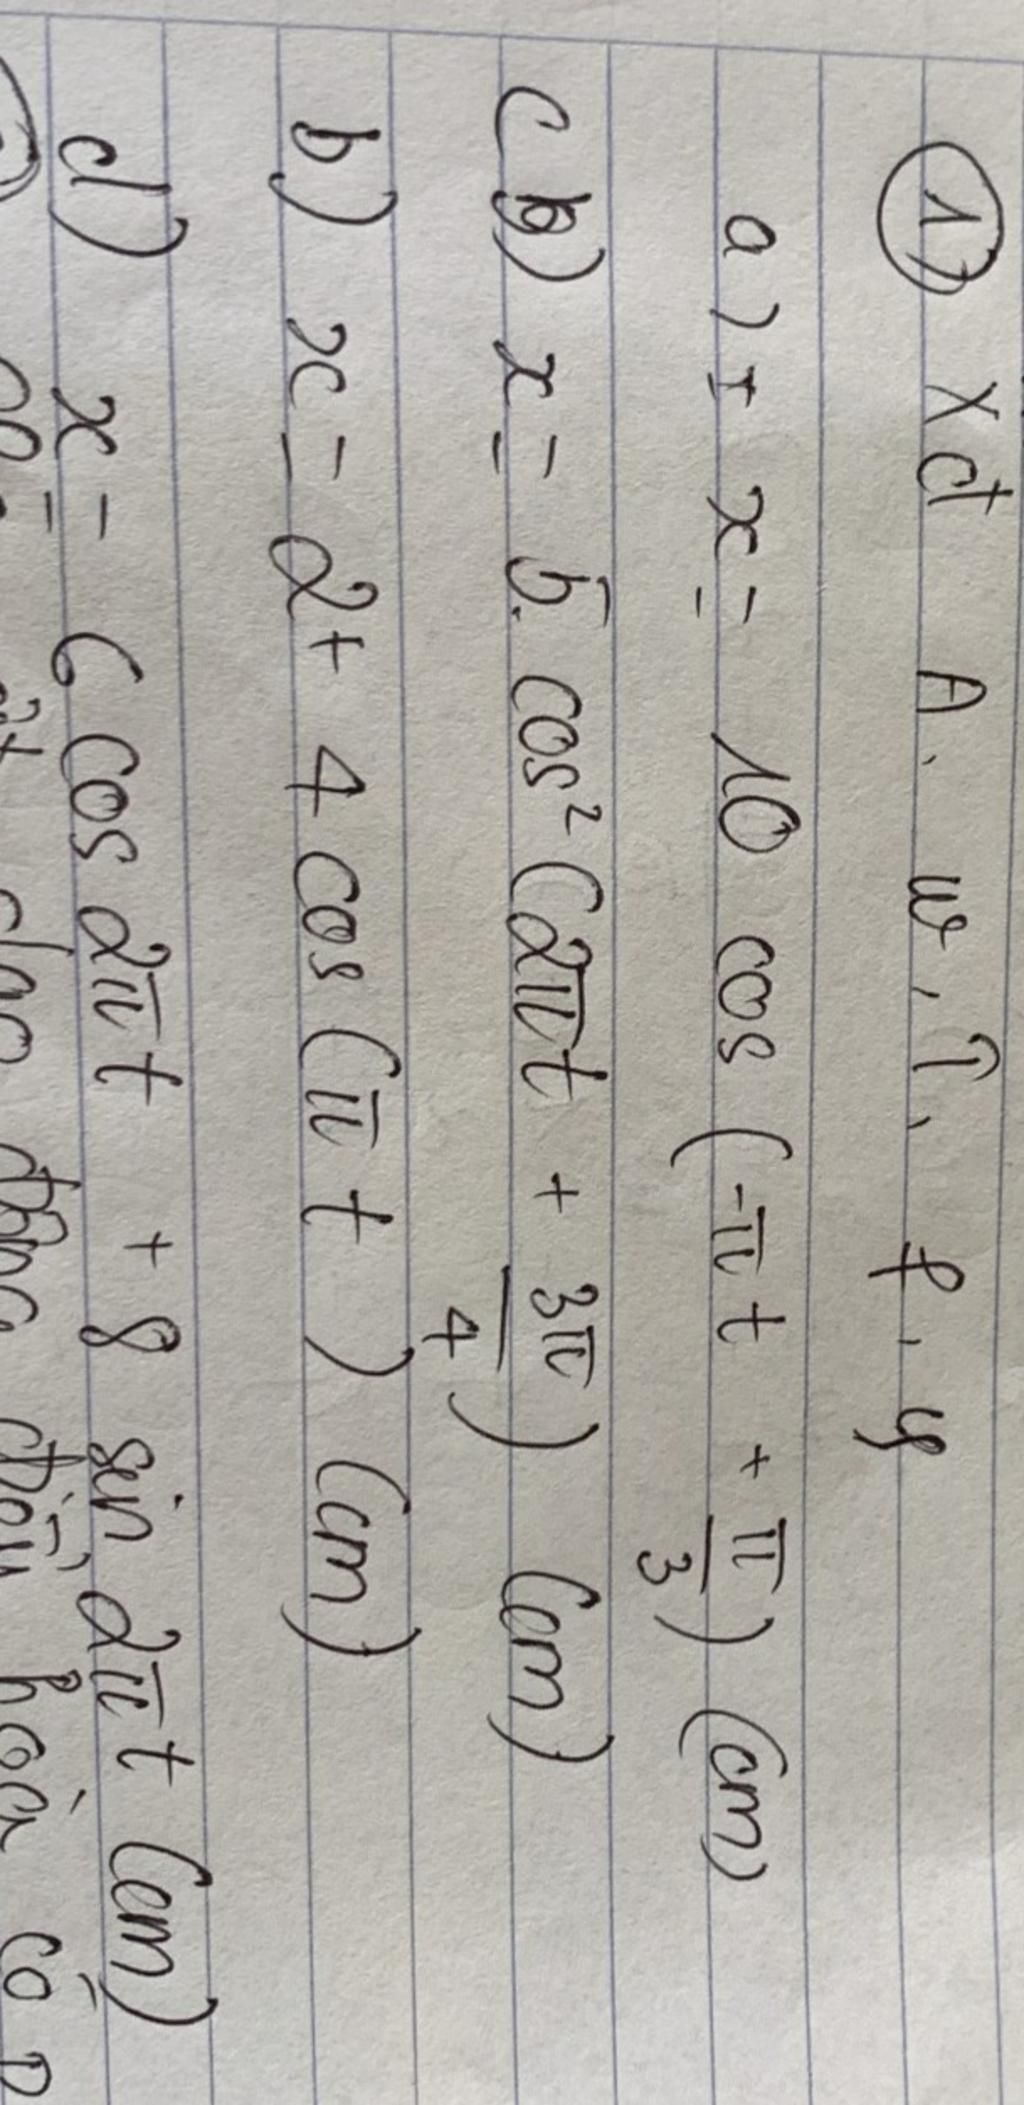 1) Xđ A. w, T, f, φ
a) + x = 10 cos (-πt + π/3) (cm)
c b) x = 5. cos² (2πt + 3π/4) (cm)
b) x = 2 + 4 cos (πt) (cm)
d) x = 6 cos 2πt + 8 sin 2πt (cm)
dao động điều hoà có p